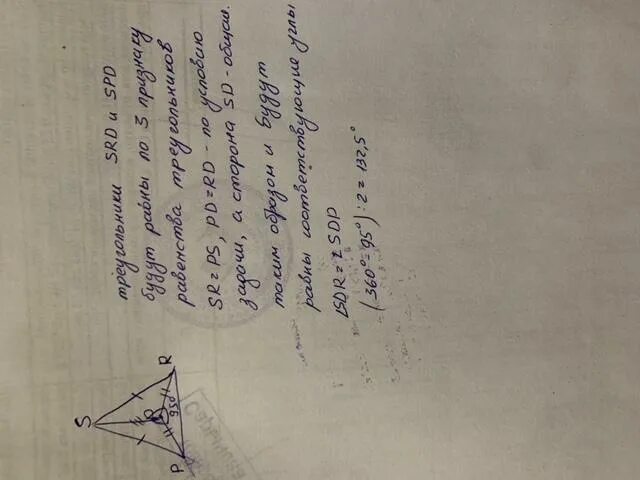 S
D
95°
P
R
треугольники SRD и SPD
будут равны по 3 признаку
равенства треугольников
SR=PS, PD=RD - по условию
задачи, а сторона SD - общая.
таким образом и будут
равны соответствующие углы
∠SDR=∠SDP
(360°-95°):2=132,5°